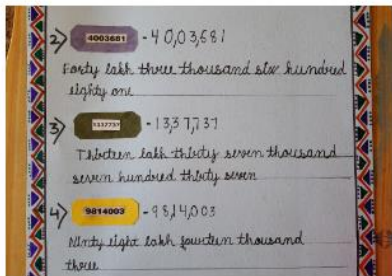 2) 4003681 - 40,03,681
Forty lakh three thousand six hundred
eighty one
3) 1337737 - 13,37,737
Thirteen lakh thirty seven thousand
seven hundred thirty seven
4) 9814003 - 98,14,003
Ninty eight lakh fourteen thousand
three